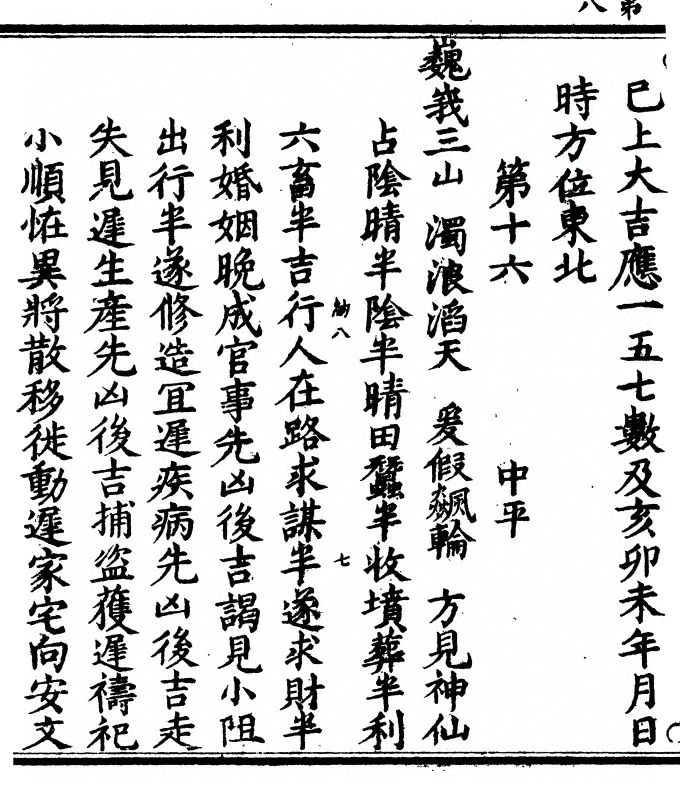 巳上大吉應一五七數及亥卯未年月日
時方位東北
第十六 中平
巍峩三山 濁浪滔天 爰假飈輪 方見神仙
占陰晴半陰半晴田蠶半收墳葬半利
六畜半吉行人在路求謀半遂求財半
利婚姻晚成官事先凶後吉謁見小阻
出行半遂修造宜遲疾病先凶後吉走
失見遲生產先凶後吉捕盜獲遲禱祀
小順恠異將散移徙動遲家宅向安文
八
七